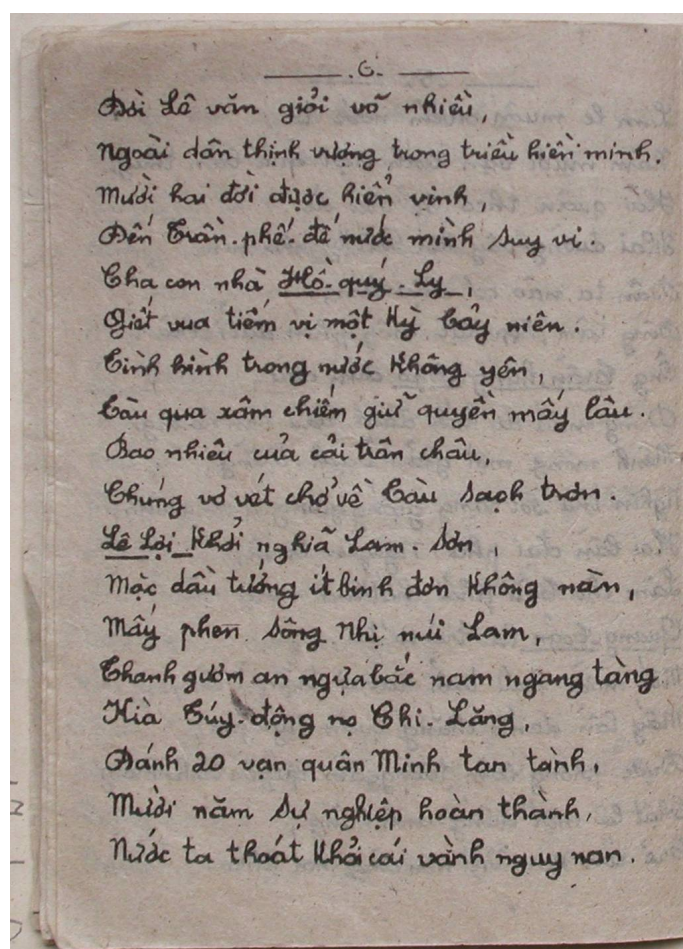 .6.
Đời Lê văn giỏi võ nhiều,
Ngoài dân thịnh vượng trong triều hiền minh.
Mười hai đời được hiển vinh,
Đến Trần.phế.đế nước mình suy vi.
Cha con nhà Hồ.quý.Ly,
Giết vua tiếm vị một kỳ bảy niên.
Tình hình trong nước không yên,
Tàu qua xâm chiếm giữ quyền mấy lâu.
Bao nhiêu của cải trân châu,
Chúng vơ vét chở về Tàu sạch trơn.
Lê Lợi khởi nghiã Lam.Sơn,
Mặc dầu tướng ít binh đơn không nàn,
Mấy phen sông Nhị núi Lam,
Thanh gươm an ngựa bắc nam ngang tàng
Kià Túy.động nọ Chi.Lăng,
Đánh 20 vạn quân Minh tan tành,
Mười năm sự nghiệp hoàn thành,
Nước ta thoát khỏi cái vành nguy nan.